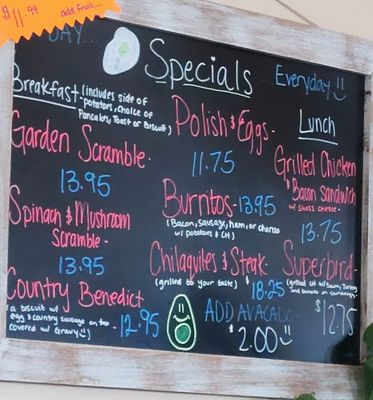 $11.99
add fruit...
DAY...
Specials
Everyday
Breakfast- (includes side of
potatoes, choice of
Pancakes, Toast or Biscuit)
Garden Scramble-
13.95
Spinach & Mushroom
Scramble-
13.95
Country Benedict
(a biscuit w/
egg & country sausage on top -
covered w/ Gravy :)
12.95
Polish & Eggs-
11.75
Burritos- 13.95
(Bacon, sausage, ham, or chorizo
w/ potatoes & CH)
Chilaquiles & Steak-
(grilled to your taste)
18.25
ADD AVACADO-
$2.00
Lunch
Grilled Chicken
& Bacon Sandwich
w/ Swiss Cheese -
13.75
Superbird-
(grilled CH w/ Bacon, Turkey
and tomato on
$12.75